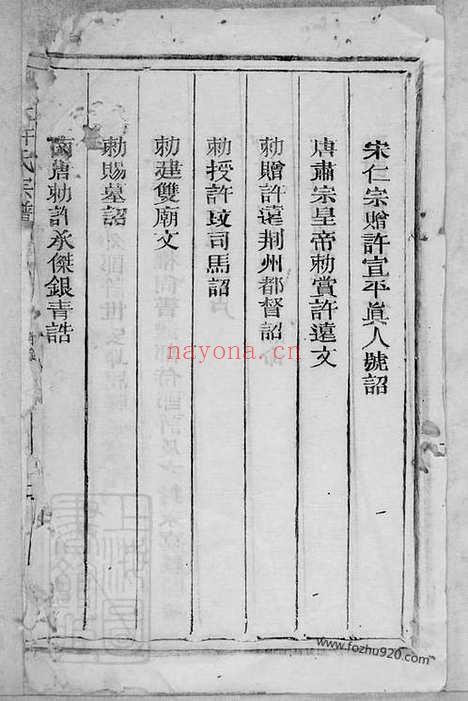 宋仁宗贈許宜平眞人號詔
唐肅宗皇帝勅賞許遠文
勅贈許遠荆州都督詔
勅授許玟司馬詔
勅建雙廟文
勅賜墓詔
南唐勅許承傑銀青誥
許氏宗譜
nayona.cn
www.fozhu920.com